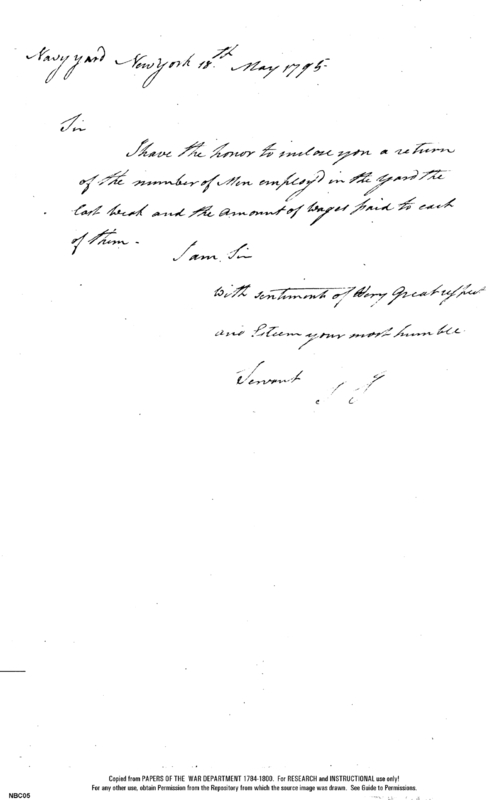 Navy yard New York 18th May 1795
Sir
I have the honor to inclose you a return
of the number of Men employ'd in the Yard the
last Week and the amount of Wages paid to each
of them.
I am Sir
With sentiments of Very Great respect
and Esteem your most humble
Servant
Copied from PAPERS OF THE WAR DEPARTMENT 1784-1800. For RESEARCH and INSTRUCTIONAL use only!
For any other use, obtain Permission from the Repository from which the source image was drawn. See Guide to Permissions.
NBC05